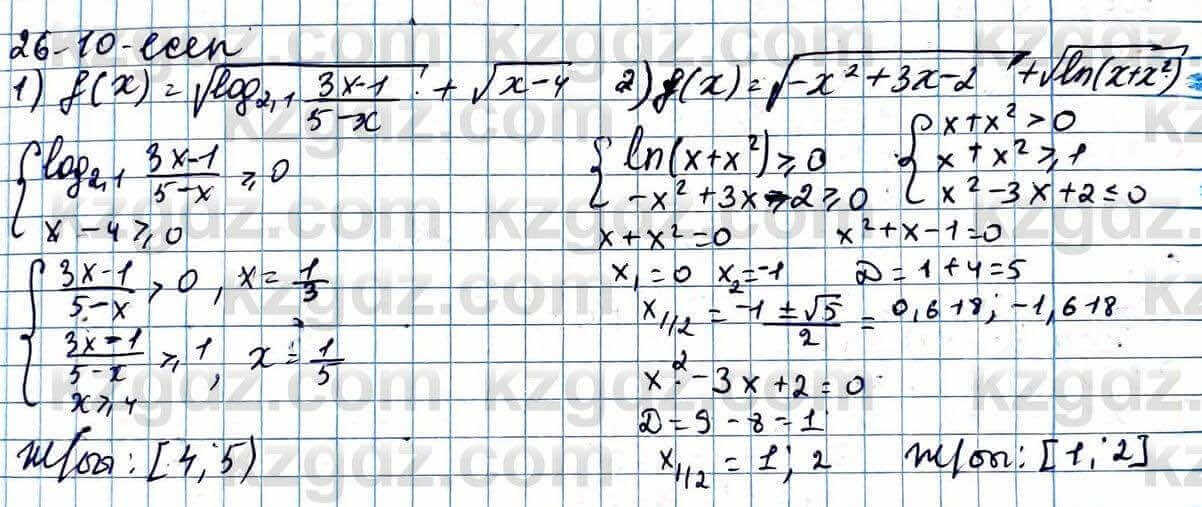 26-10-есеп
1) f(x) = √(log₂,₁ (3x-1)/(5-x)) + √(x-4)
{ log₂,₁ (3x-1)/(5-x) ⩾ 0
x - 4 ⩾ 0
{ (3x-1)/(5-x) > 0, x = 1/3
(3x-1)/(5-x) ⩾ 1, x = 1/5
x ⩾ 4
ж/бы: [4; 5)
2) f(x) = √(-x² + 3x - 2) + √(ln(x+x²))
{ ln(x+x²) ⩾ 0
-x² + 3x - 2 ⩾ 0
{ x + x² > 0
x + x² ⩾ 1
x² - 3x + 2 ≤ 0
x + x² = 0
x₁ = 0 x₂ = -1
x² + x - 1 = 0
D = 1 + 4 = 5
x₁/₂ = (-1 ± √5)/2 = 0,618; -1,618
x² - 3x + 2 = 0
D = 9 - 8 = 1
x₁/₂ = 1; 2
ж/бы: [1; 2]
kzgdz.com